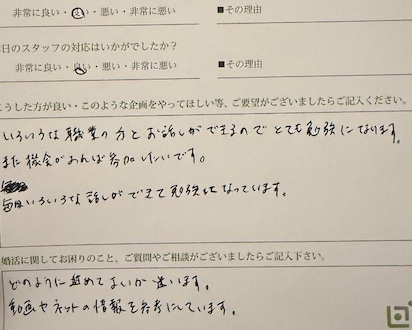 非常に良い・良い・悪い・非常に悪い ■その理由
日のスタッフの対応はいかがでしたか？
非常に良い・良い・悪い・非常に悪い ■その理由
こうした方が良い・このような企画をやってほしい等、ご要望がございましたらご記入ください。
いろいろな職業の方とお話しができるのでとても勉強になります。
また機会があれば参加したいです。
毎回いろいろな話しができて勉強になっています。
婚活に関してお困りのこと、ご質問やご相談がございましたらご記入下さい。
どのように進めてよいか迷います。
動画やネットの情報を参考にしています。